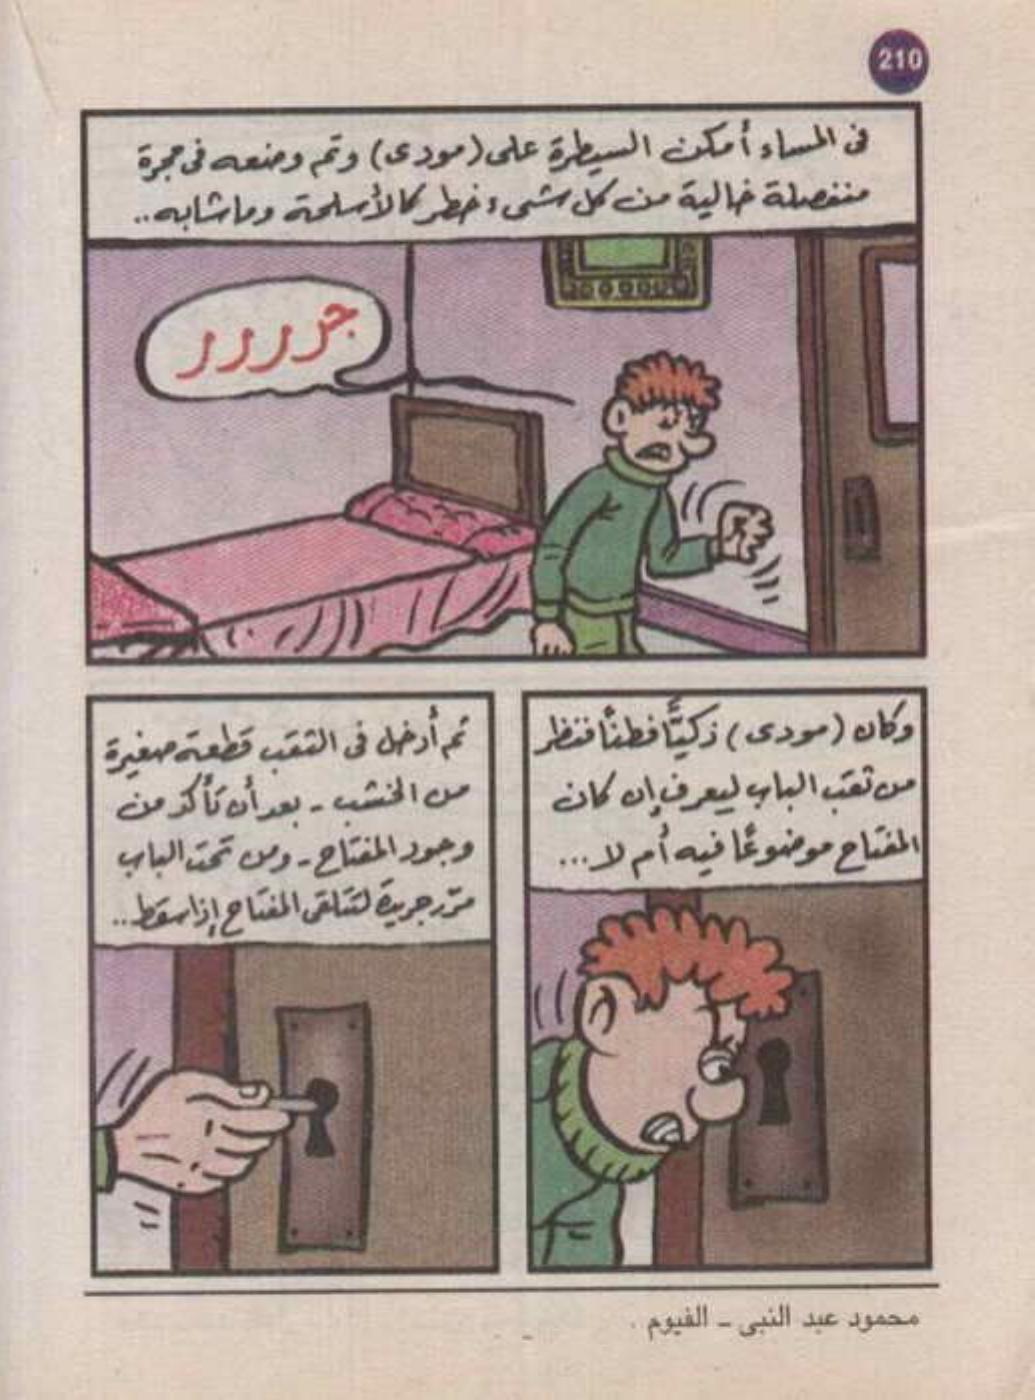 210
فى المساء أمكن السيطرة على (مودى) وتم وضعه فى حجرة
منفصلة خالية من كل شىء خطر كالأسلحة وماشابه..
جرررر
وكان (مودى) ذكيًّا فطنًا فنظر
من ثقب الباب ليعرف إن كان
المفتاح موضوعًا فيه أم لا...
ثم أدخل فى الثقب قطعة صغيرة
من الخشب - بعد أن تأكد من
وجود المفتاح - ومن تحت الباب
مرّر جريدة لتتلقى المفتاح إذا سقط..
محمود عبد النبى - الفيوم .